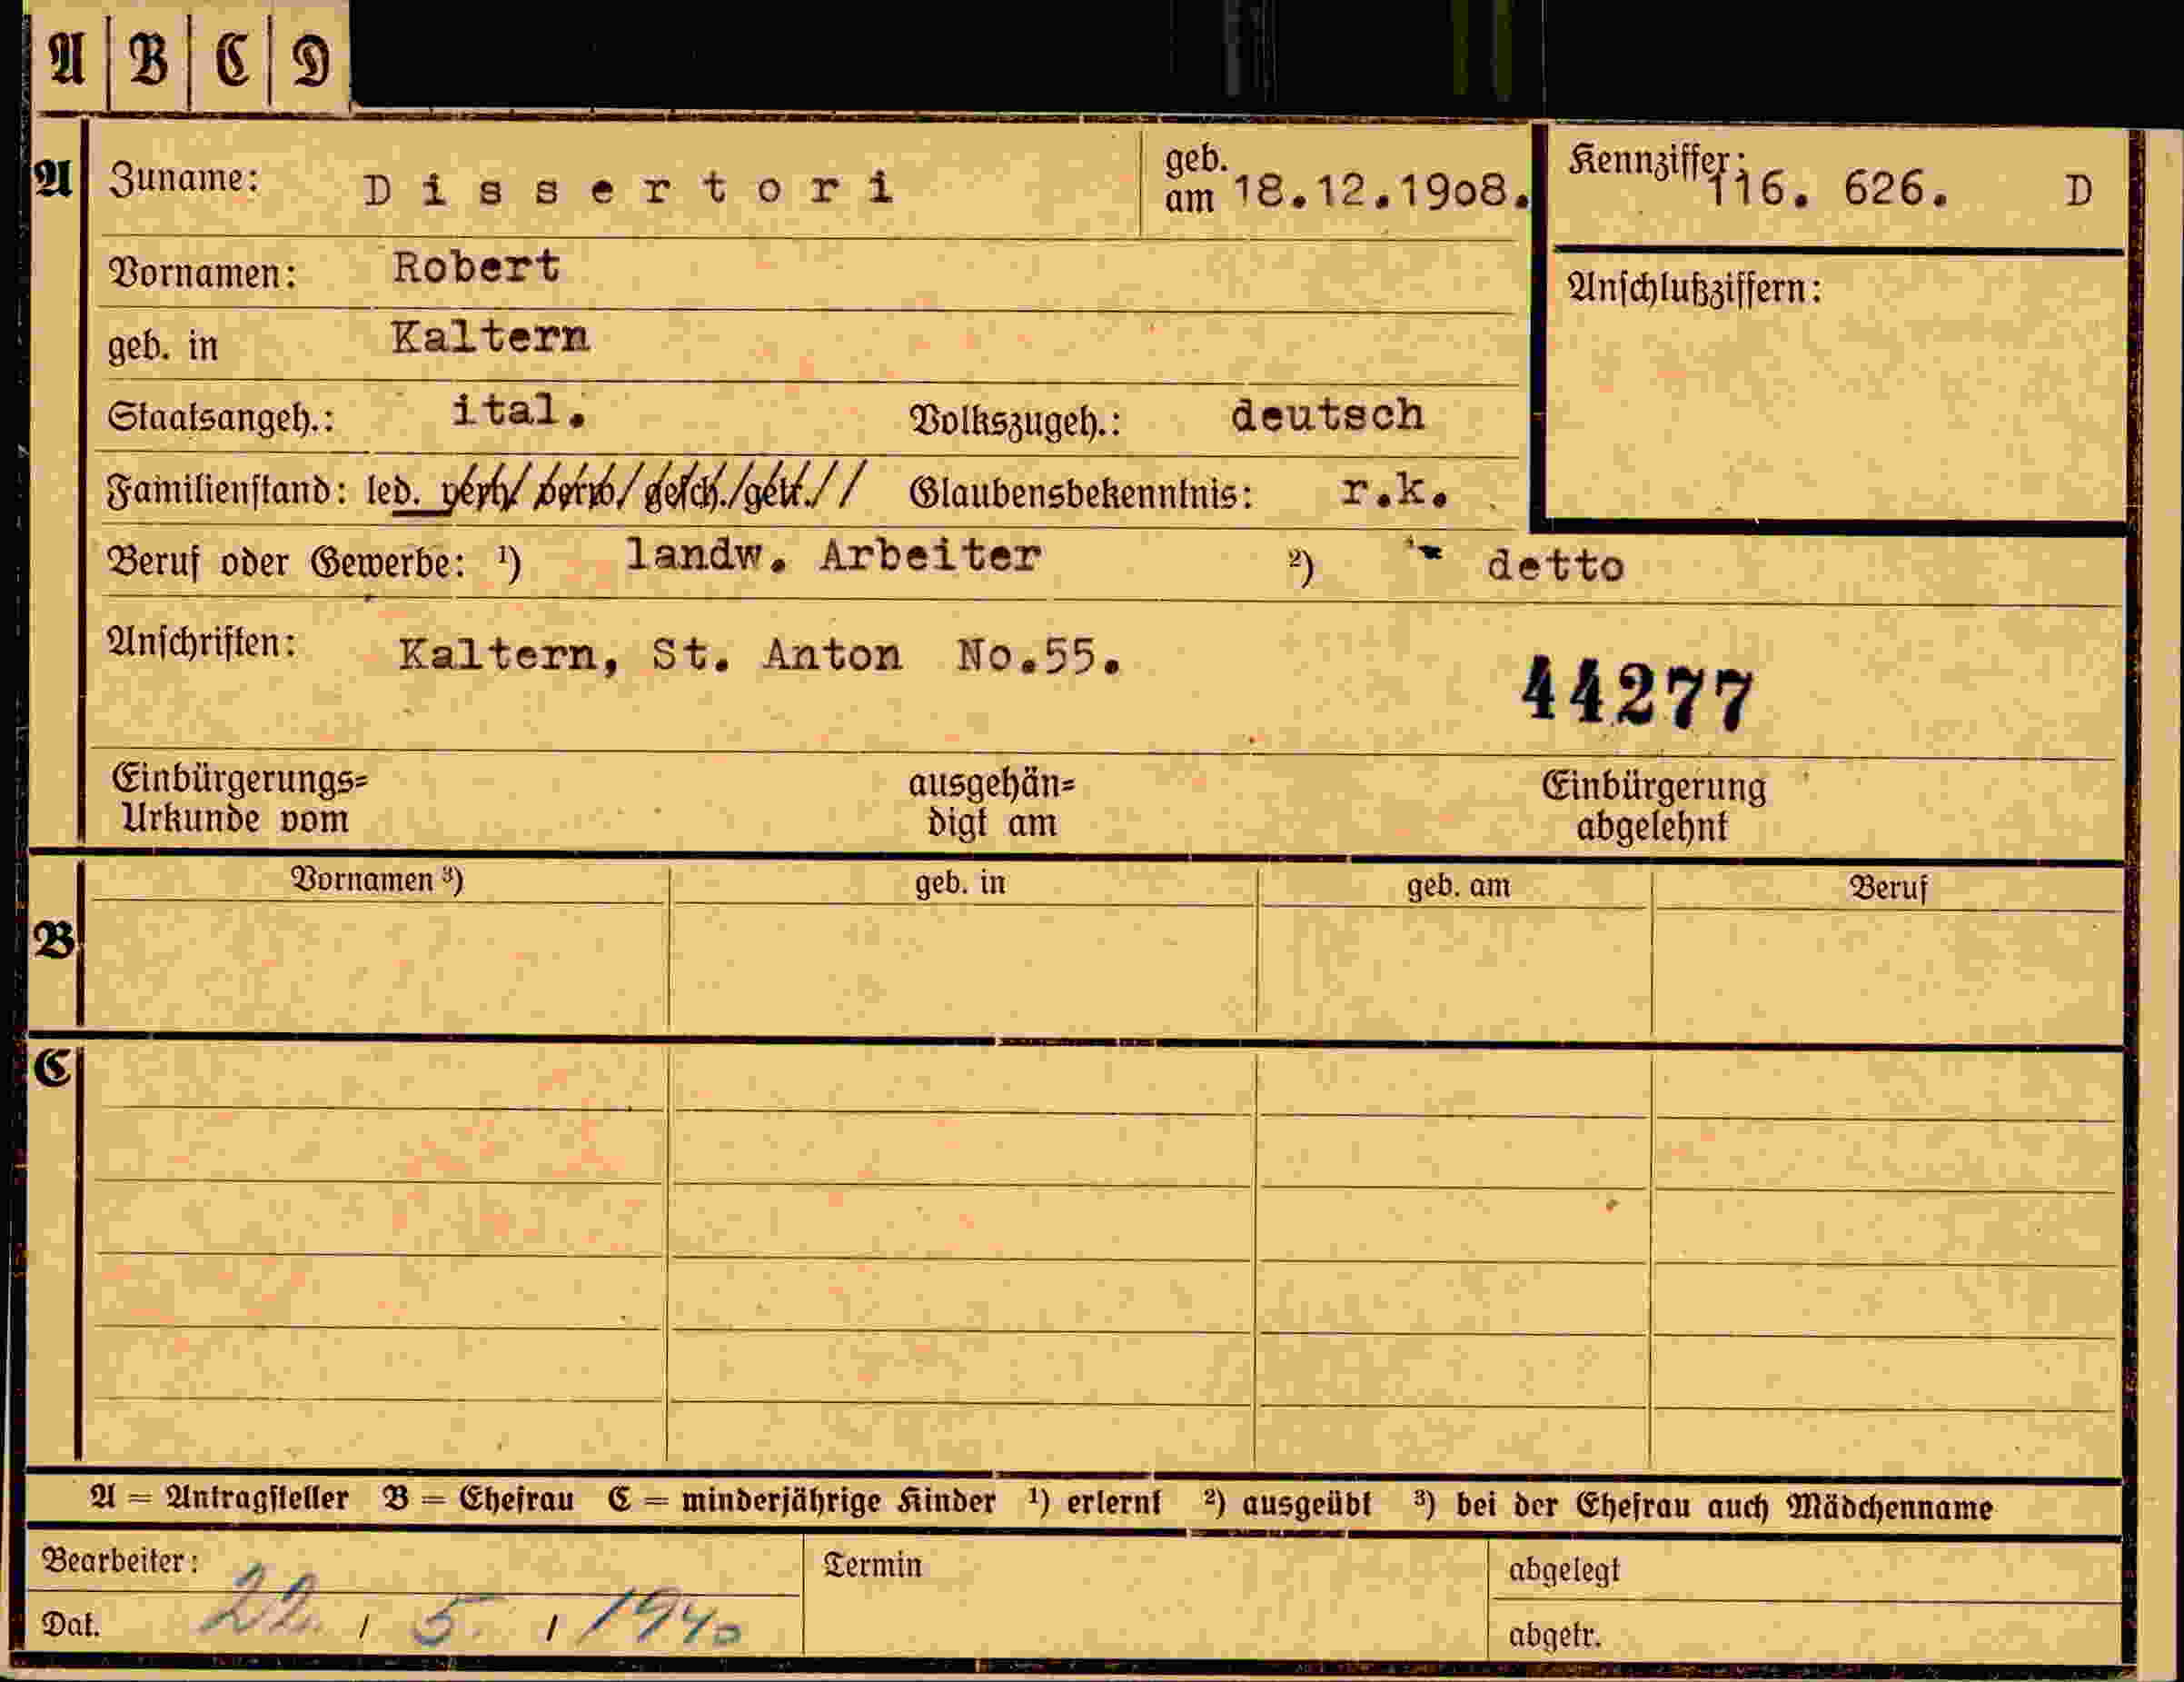 A B C D
A Zuname: Dissertori geb. am 18.12.1908. Kennziffer: 116. 626. D
Vornamen: Robert
Anschlußziffern:
geb. in Kaltern
Staatsangeh.: ital. Volkszugeh.: deutsch
Familienstand: led. verh. verw. gesch. getr. Glaubensbekenntnis: r.k.
Beruf oder Gewerbe: ¹) landw. Arbeiter ²) detto
Anschriften: Kaltern, St. Anton No.55.
44277
Einbürgerungs= ausgehän= Einbürgerung
Urkunde vom digt am abgelehnt
Vornamen ³) geb. in geb. am Beruf
B
C
A = Antragsteller B = Ehefrau C = minderjährige Kinder ¹) erlernt ²) ausgeübt ³) bei der Ehefrau auch Mädchenname
Bearbeiter: Termin abgelegt
Dat. 22. / 5. / 1940 abgetr.